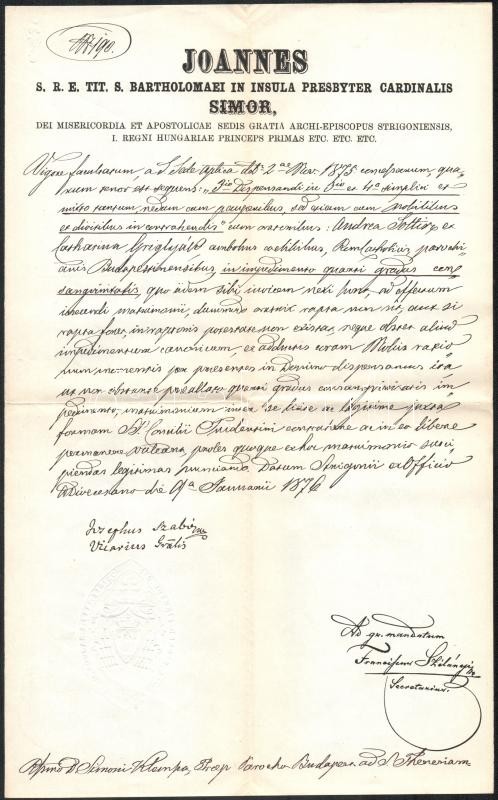 JOANNES
S. R. E. TIT. S. BARTHOLOMAEI IN INSULA PRESBYTER CARDINALIS
SIMOR,
DEI MISERICORDIA ET APOSTOLICAE SEDIS GRATIA ARCHI-EPISCOPUS STRIGONIENSIS,
I. REGNI HUNGARIAE PRINCEPS PRIMAS ETC. ETC. ETC.
Vigore facultatum, a S. Sede Aplica 2 Nov. 1875 concessarum, qua-
rum tenor est sequens: dispensandi in et 4o simplici et
mixto tantum non cum pauperibus, sed etiam cum Nobilibus
et divitibus in contrahendis cum oratoribus: Andrea et
Catharina ambobus coelibibus, Rom. Catholicis, parochi-
anis Budapestinensibus, in impedimento quarti gradus con-
sanguinitatis, quo iidem sibi invicem nexi sunt, ad effectum
ineundi matrimonii, dummodo oratrix rapta non sit, aut si
rapta foret, in raptoris potestate non existat, neque obstet aliud
impedimentum canonicum, ex adductis coram Nobis ratio
num momentis per praesentes in Domino dispensamus ita
ut non obstante praeallato quarti gradus consanguinitatis im
pedimento, matrimonium inter se licite ac legitime juxta
formam S. Concilii Tridentini contrahere ac in eo libere
permanere valeant, proles quoque ex hoc matrimonio susci
piendas legitimas nuntiando. Datum Strigonii ex Officio
Dioecesano die 9a Januarii 1876
Josephus Szabó
Vicarius Grālis
Ad gr. mandatum
Franciscus
Secretarius
D Simoni Klempa, Parocho Budapest. ad S. Theresiam.